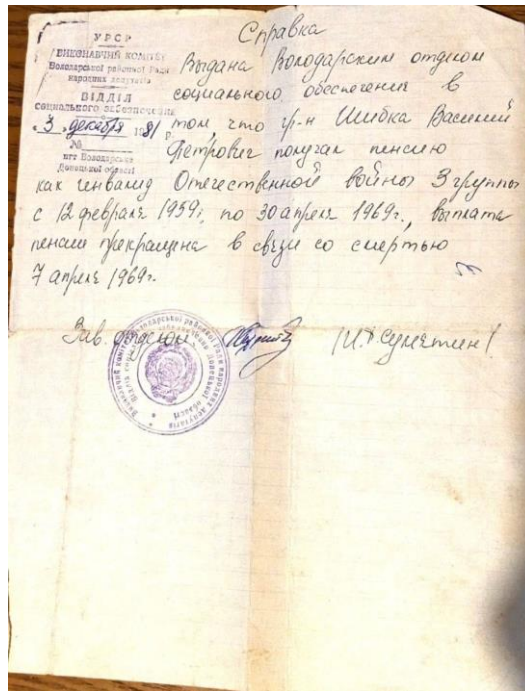 Справка
УРСР
ВИКОНАВЧИЙ КОМІТЕТ
Володарської районної Ради
народних депутатів
ВІДДІЛ
социального забезпечення
"3" декабря 1981 г.
№
пгт Володарське
Донецької області
Выдана Володарским отделом
социального обеспечения в
том, что гр-н Шибка Василий
Петрович получал пенсию
как инвалид Отечественной войны 3 группы
с 12 февраля 1959г. по 30 апреля 1969г., выплата
пенсии прекращена в связи со смертью
7 апреля 1969г.
Зав. отделом